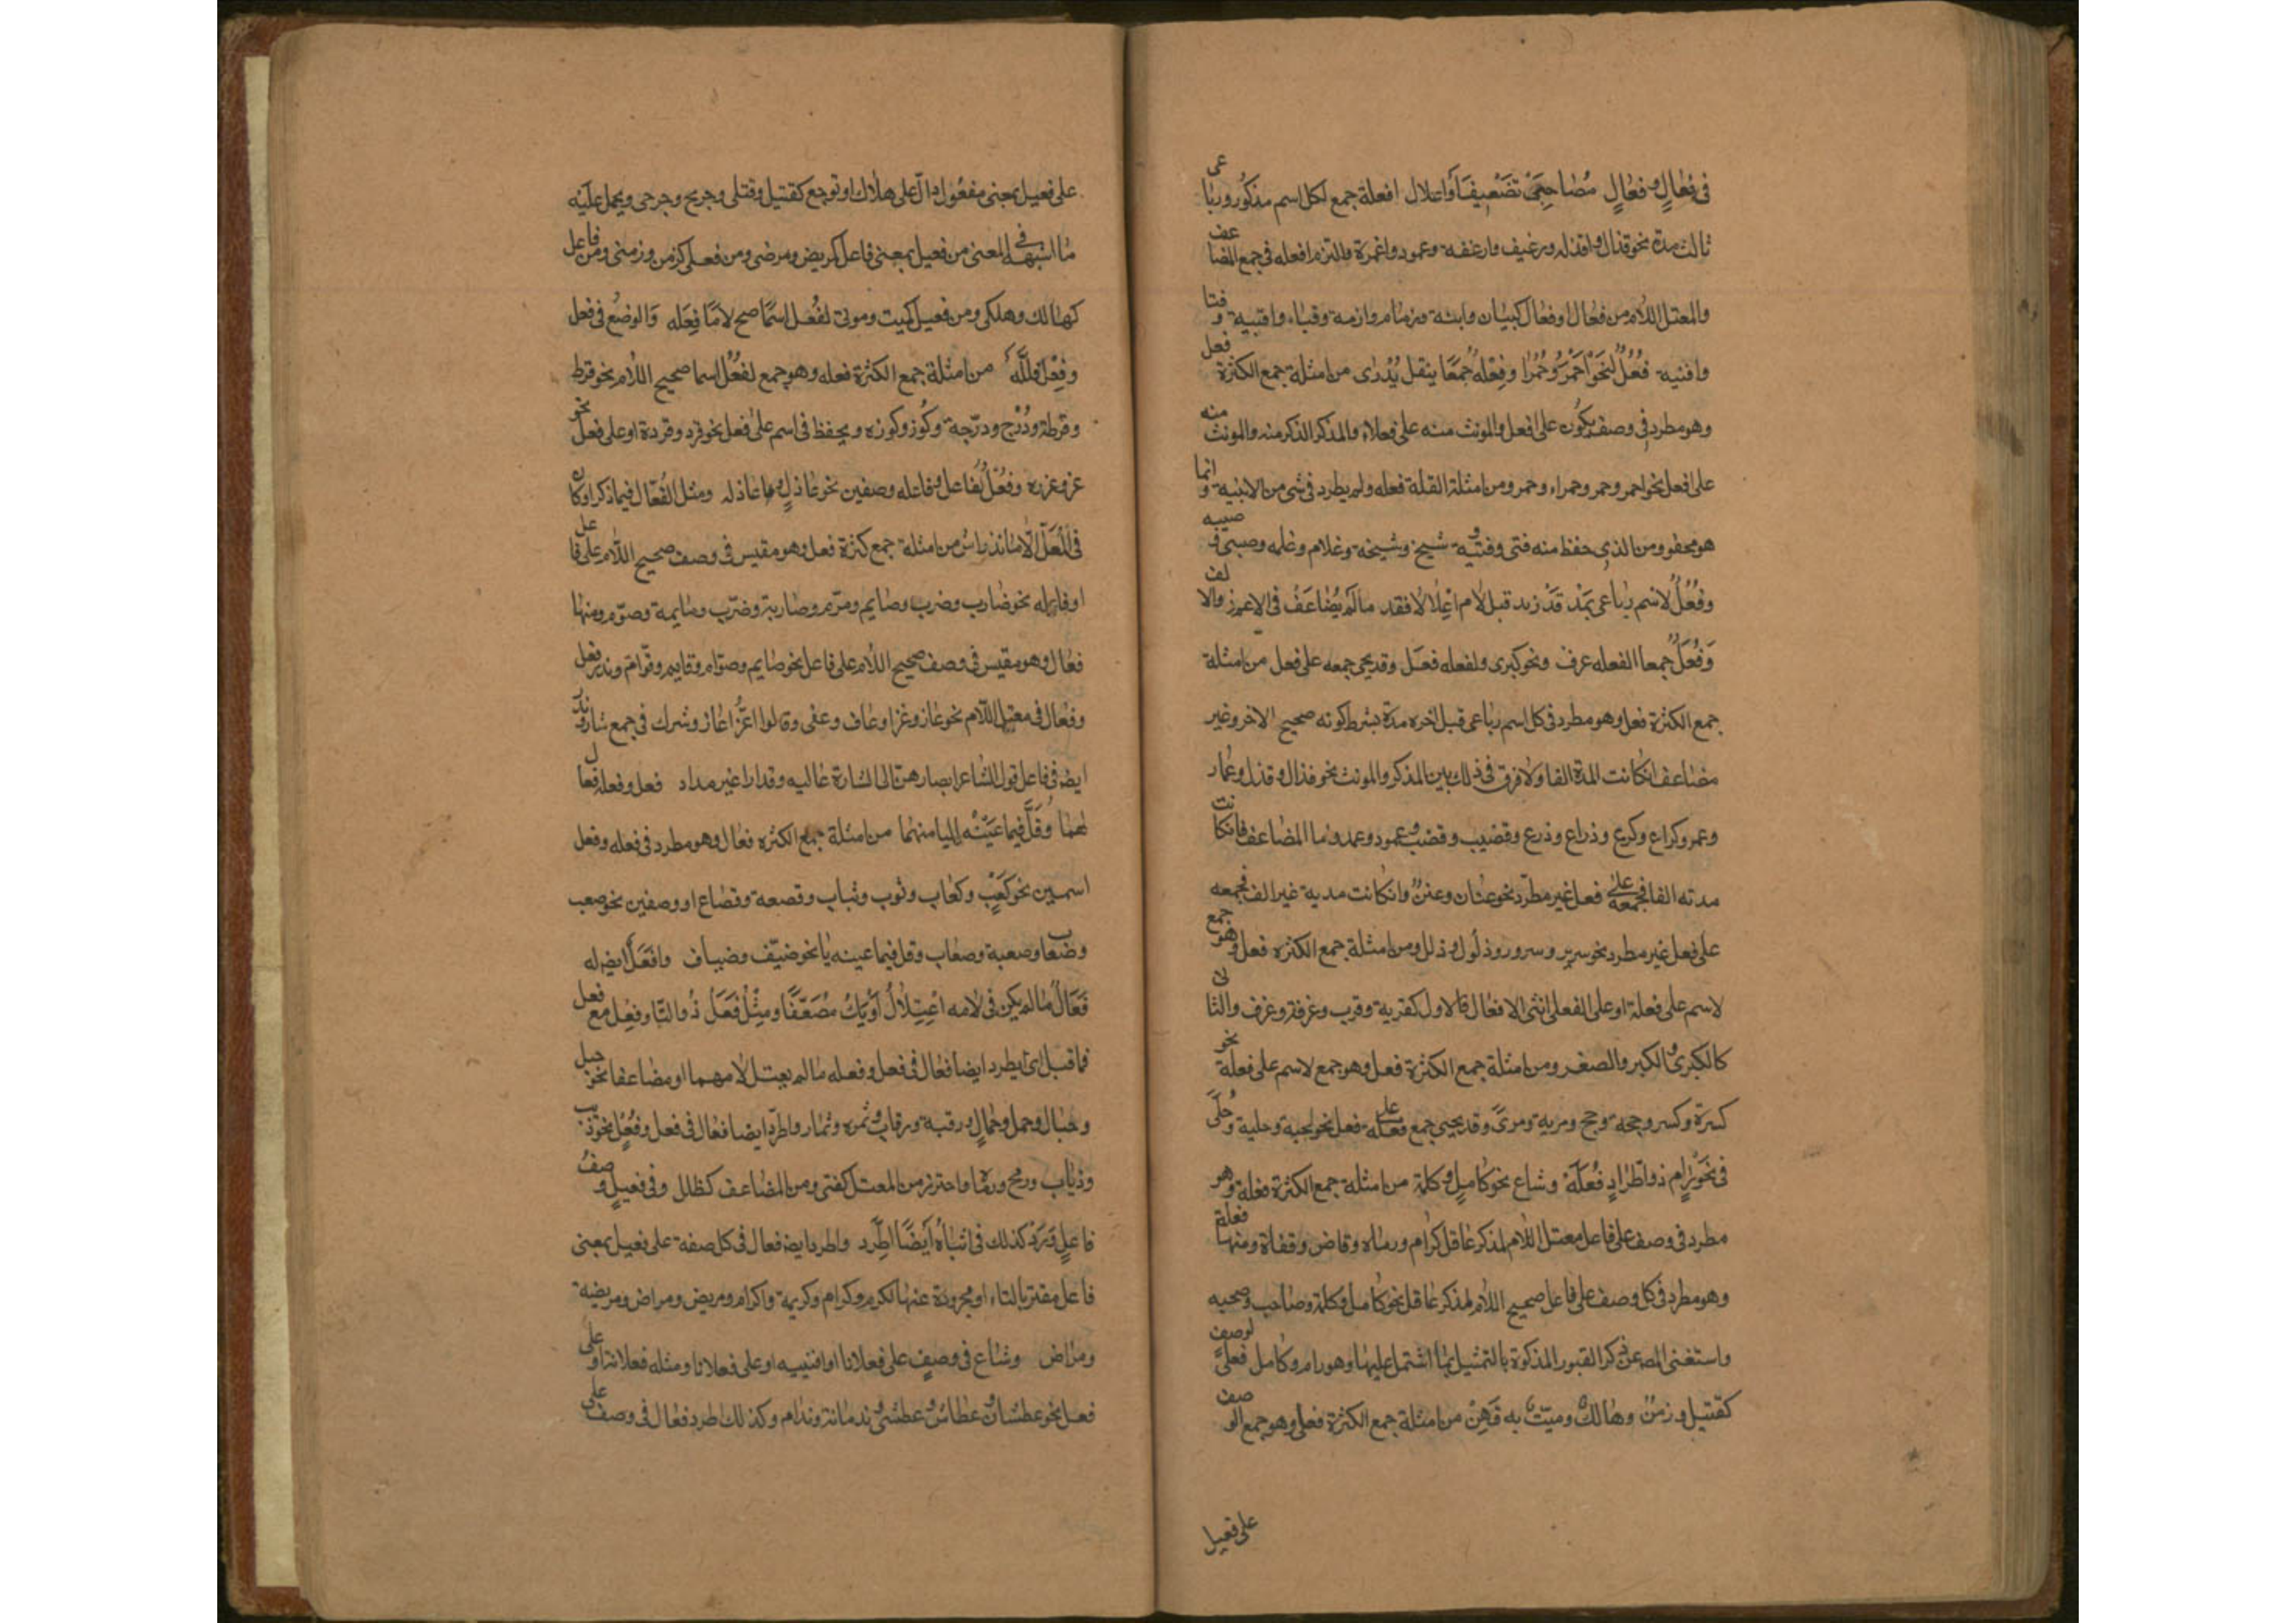 في فَعَالٍ وفِعَالٍ مُصَاحِبَيْ تَضْعِيفٍ أَوْ اعلال افعلة جمع لكل اسم مذكور رباعى
ثالث مدة نحو قذال واقذله ورغيف وارغفة وعمود واعمدة والتزم افعله في جمع المضاعف
والمعتل اللام من فعال او فعال كبتات وابتة وزمام وازمة وقباء واقبية وفتا
وافنيه فُعْلٌ لِنَحْوِ أَحْمَرَ وحَمْرَا وفِعْلَةٌ جَمْعًا بنقل يُدْرى من امثلة جمع الكثرة فعل
وهو مطرد في وصف يكون على افعل والمونث منه على فعلاء والمذكر الذكر منه والمونث منه
على افعل نحو احمر وحمر وحمراء وحمر ومن امثلة القلة فعله ولم يطرد في شى من الابنية وانما
هو محفوظ ومن الذى حفظ منه فتى وفتية وشيخ وشيخة وغلام وغلمه وصبى وصبيه
وفُعُلٌ لاسم رباعى بمد قَدْ زيد قبل لام اعلالا فقد مالم يُضَاعَفْ في الاعم ذو الالف
وَفُعَلٌ جمعا لفعله عرف ونحو كبرى ولفعله فعل وقد يجى جمعه على فعل من امثلة
جمع الكثرة فعل وهو مطرد في كل اسم رباعى قبل اخره مدة بشرط كونه صحيح الاخر وغير
مضاعف ان كانت المدة الفا ولا فرق في ذلك بين المذكر والمونث نحو قذال وقذل وحمار
وحمر وكراع وكرع وذراع وذرع وقضيب وقضب وعمود وعمد واما المضاعف فان كانت
مدته الفا فجمعه على فعل غير مطرد نحو عنان وعنن وان كانت مديه غير الف فجمعه
على فعل غير مطرد نحو سرير وسرور وذلول وذلل ومن امثلة جمع الكثره فعل وهو جمع
لاسم على فعلة او على الفعلى انثى الافعال فالاول كقربة وقرب وغرفة وغرف والثانى
كالكبرى والكبر والصغر ومن امثلة جمع الكثرة فعل وهو جمع لاسم على فعلة نحو
كسرة وكسر وحجة وحجج ومرية ومرى وقد يجيى جمع فعله على فعل نحو لحية وحلية وحُلَى
في نَحْوِ رامٍ ذو اطّرادٍ فُعَلَه وشاع نحو كامل وكملة من امثله جمع الكثرة فعله وهو
مطرد في وصف على فاعل معتل اللام لمذكر عاقل كرام ورماه وقاض وقضاة ومنها فعلة
وهو مطرد في كل وصف على فاعل صحيح اللام لمذكر عاقل نحو كامل وكملة وصاحب وصحبه
واستغنى المص عن ذكر القيود المذكوة بالتمثيل بما اشتمل عليها وهو رام وكامل فعلى لوصف
كقتيل وزمن وهالك وميت به قمن من امثلة جمع الكثرة فعلى وهو جمع الوصف
على فعيل
على فعيل بمعنى مفعول دال على هلاك او توجع كقتيل وقتلى وجريح وجرحى ويحمل عليه
ما اشبهه في المعنى من فعيل بمعنى فاعل كمريض ومرضى ومن فعل كزمن وزمنى ومن فاعل
كهالك وهلكى ومن فعيل كميت وموتى لفُعْل اسمًا صح لامًا فِعَله وَالوضع في فعل
وفِعْل قلله من امثلة جمع الكثرة فعله وهو جمع لفُعْل اسما صحيح اللام نحو قرط
وقرطة ودُرْج ودرجة وكوز وكوزه ويحفظ في اسم على فعل نحو قرد وقردة او على فعل نحو
غز وغزرة وفُعَّل لفاعل وفاعله وصفين نحو عاذل وعاذله ومثله الفُعّال فيما ذكرا وكان
في المُعَلّ لاما ندرا من امثلة جمع كثرة فعل وهو مقيس في وصف صحيح اللام على فاعل
او فاعله نحو ضارب وضرب وصايم وصوم وضاربة وضرّب وصايمة وصوّم ومنها
فعال وهو مقيس في وصف صحيح اللام على فاعل نحو صايم وصوام وقايم وقوام وندر فعل
وفعال في معتل اللام نحو غاز وغزا وعاف وعفى وقالوا غزّا غاز وشرك في جمع شارك وندر
ايض في فاعل قول الشاعر ابصارهن الى الشارة غاليه وقد ارا غير مداد فعل وفعله فعال
لهما وقَلَّ فيما عينه اليا منهما من امثلة جمع الكثره فعال وهو مطرد في فعله وفعل
اسمين نحو كَعْب وكعاب وثوب وثياب وقصعة وقصاع او وصفين نحو صعب
وصعاب وصعبة وصعاب وقل فيما عينه يا نحو ضيف وضياف وافعل ايض له
فَعَالٌ مالم يكن في لامه اعتلال أو يك مُضَعَّفًا ومثل فعل ذو التا وفعل مع فعل
فاقبل اى يطرد ايضا فعال في فعل وفعله مالم يعتل لامهما او مضاعفا نحو جبل
وجبال وجمل وجمال ورقبة ورقاب وثمره وثمار واطرد ايضا فعال في فعل وفعل نحو ذيب
وذياب ورمح ورماح واحترز من المعتل كفتى ومن المضاعف كظلل وفى فعيل وصف
فاعل وَرَدْ كذلك في انثاه أيضًا اطّرد واطرد ايض فعال في كل صفة على فعيل بمعنى
فاعل مقترنا بالتاء او مجرودة عنها لكريم وكرام وكريمة واكرام ومريض ومراض ومريضة
ومراض وشاع في وصف على فعلانا او انثييه او على فعلانا ومثله فعلانة او على
فعل نحو عطشان وعطاش وعطشى وندمانة وندام وكذلك اطرد فعال في وصف على